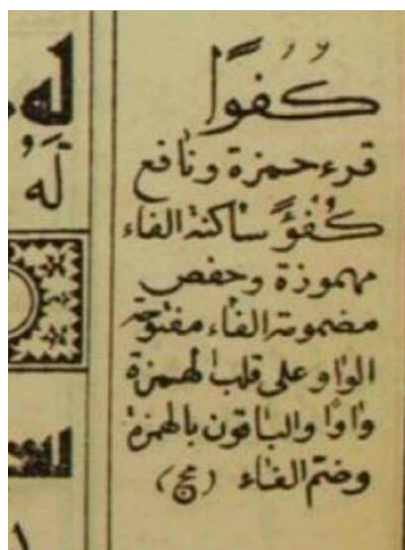 كُفُوًا
قرء حمزة ونافع
كُفُؤً ساكنة الفاء
مهموزة وحفص
مضمومة الفاء مفتوحة
الواو على قلب الهمزة
واوًا والباقون بالهمزة
وضم الفاء (مج)
لَهُ